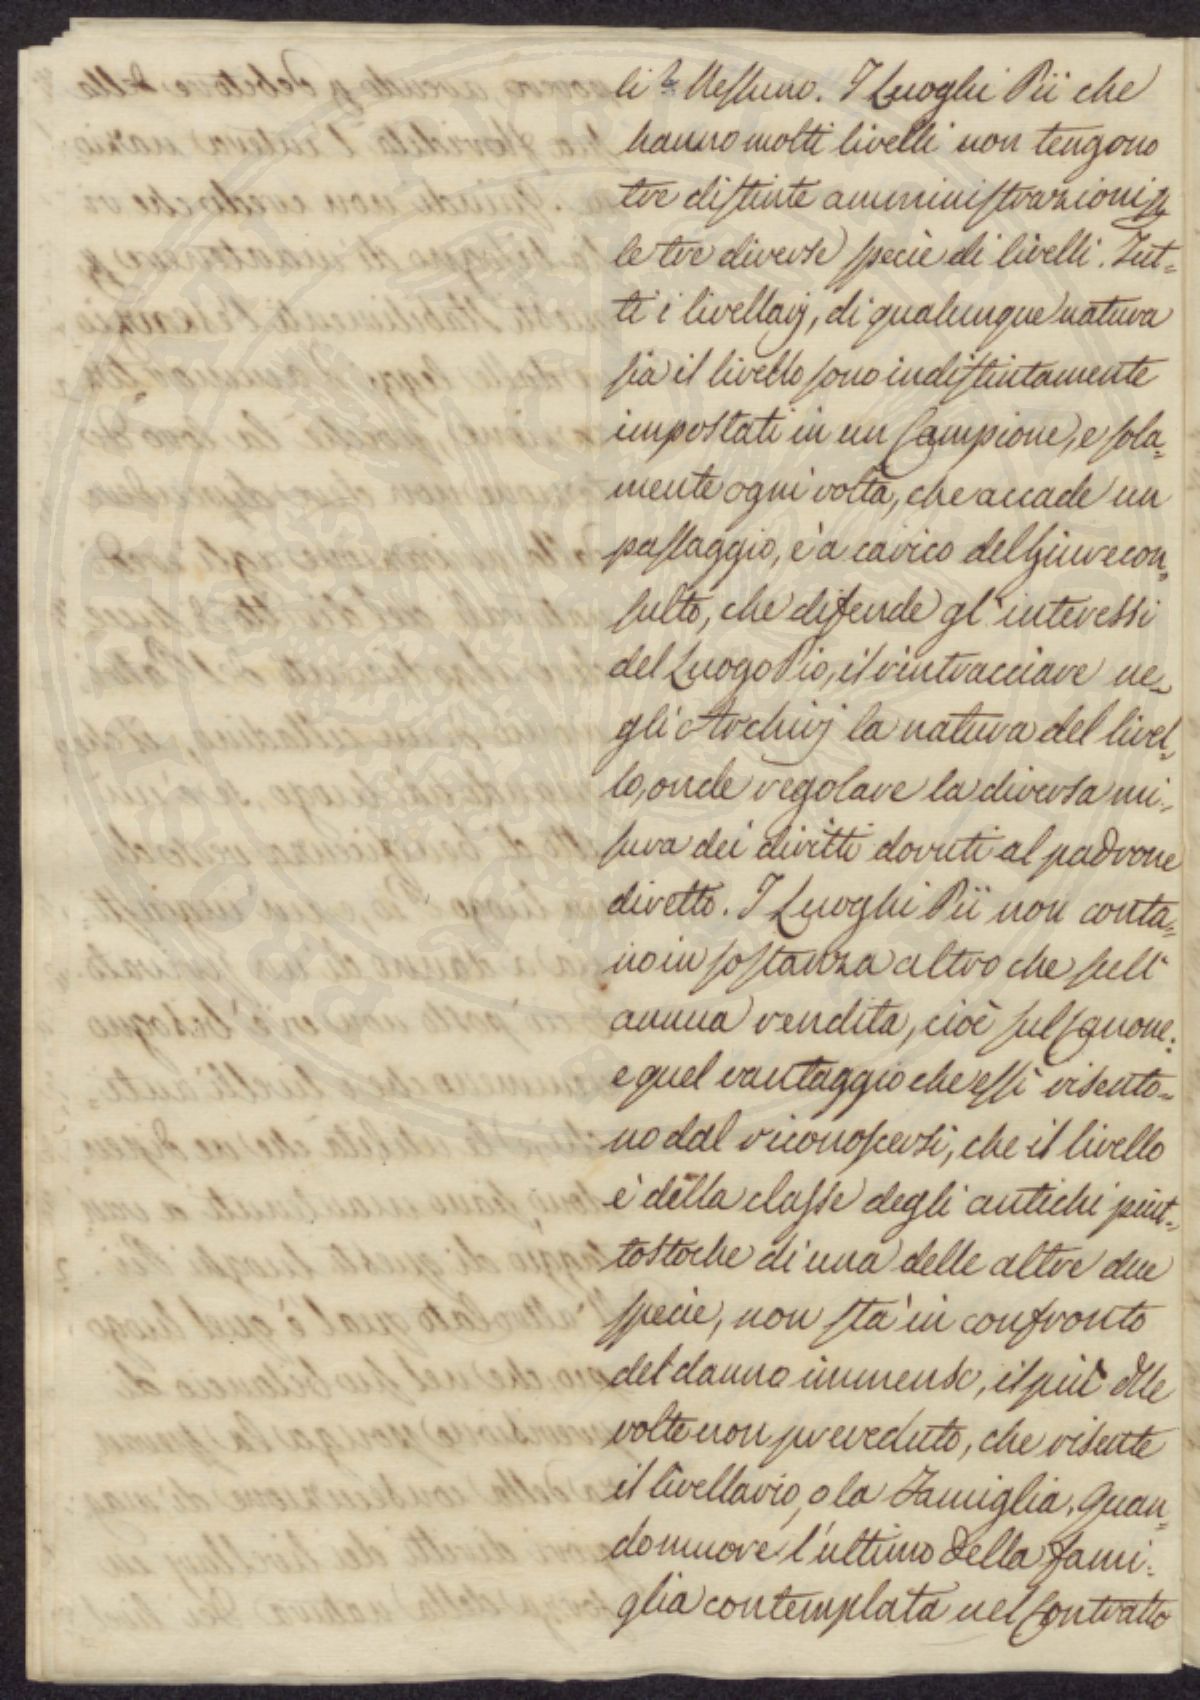 li? Nessuno. I Luoghi Pii che
hanno molti livelli non tengono
tre distinte amministrazioni p
le tre diverse specie di livelli. Tut-
ti i livellarj, di qualunque natura
sia il livello sono indistintamente
impostati in un Campione, e sola-
mente ogni volta, che accade un
passaggio, è a carico del Giurecon-
sulto, che difende gl'interessi
del Luogo Pio, il rintracciare ne-
gli Archivj la natura del livel-
lo, onde regolare la diversa mi-
sura dei diritti dovuti al padrone
diretto. I Luoghi Pii non conta-
no in sostanza altro che sull'
annua rendita, cioè sul Canone:
e quel vantaggio che essi risento-
no dal riconoscersi, che il livello
è della classe degli antichi piut-
tostoche di una delle altre due
specie, non stà in confronto
del danno immenso, il più delle
volte non preveduto, che risente
il livellario, o la Famiglia. Quan-
do muore l'ultimo della fami-
glia contemplata nel Contratto